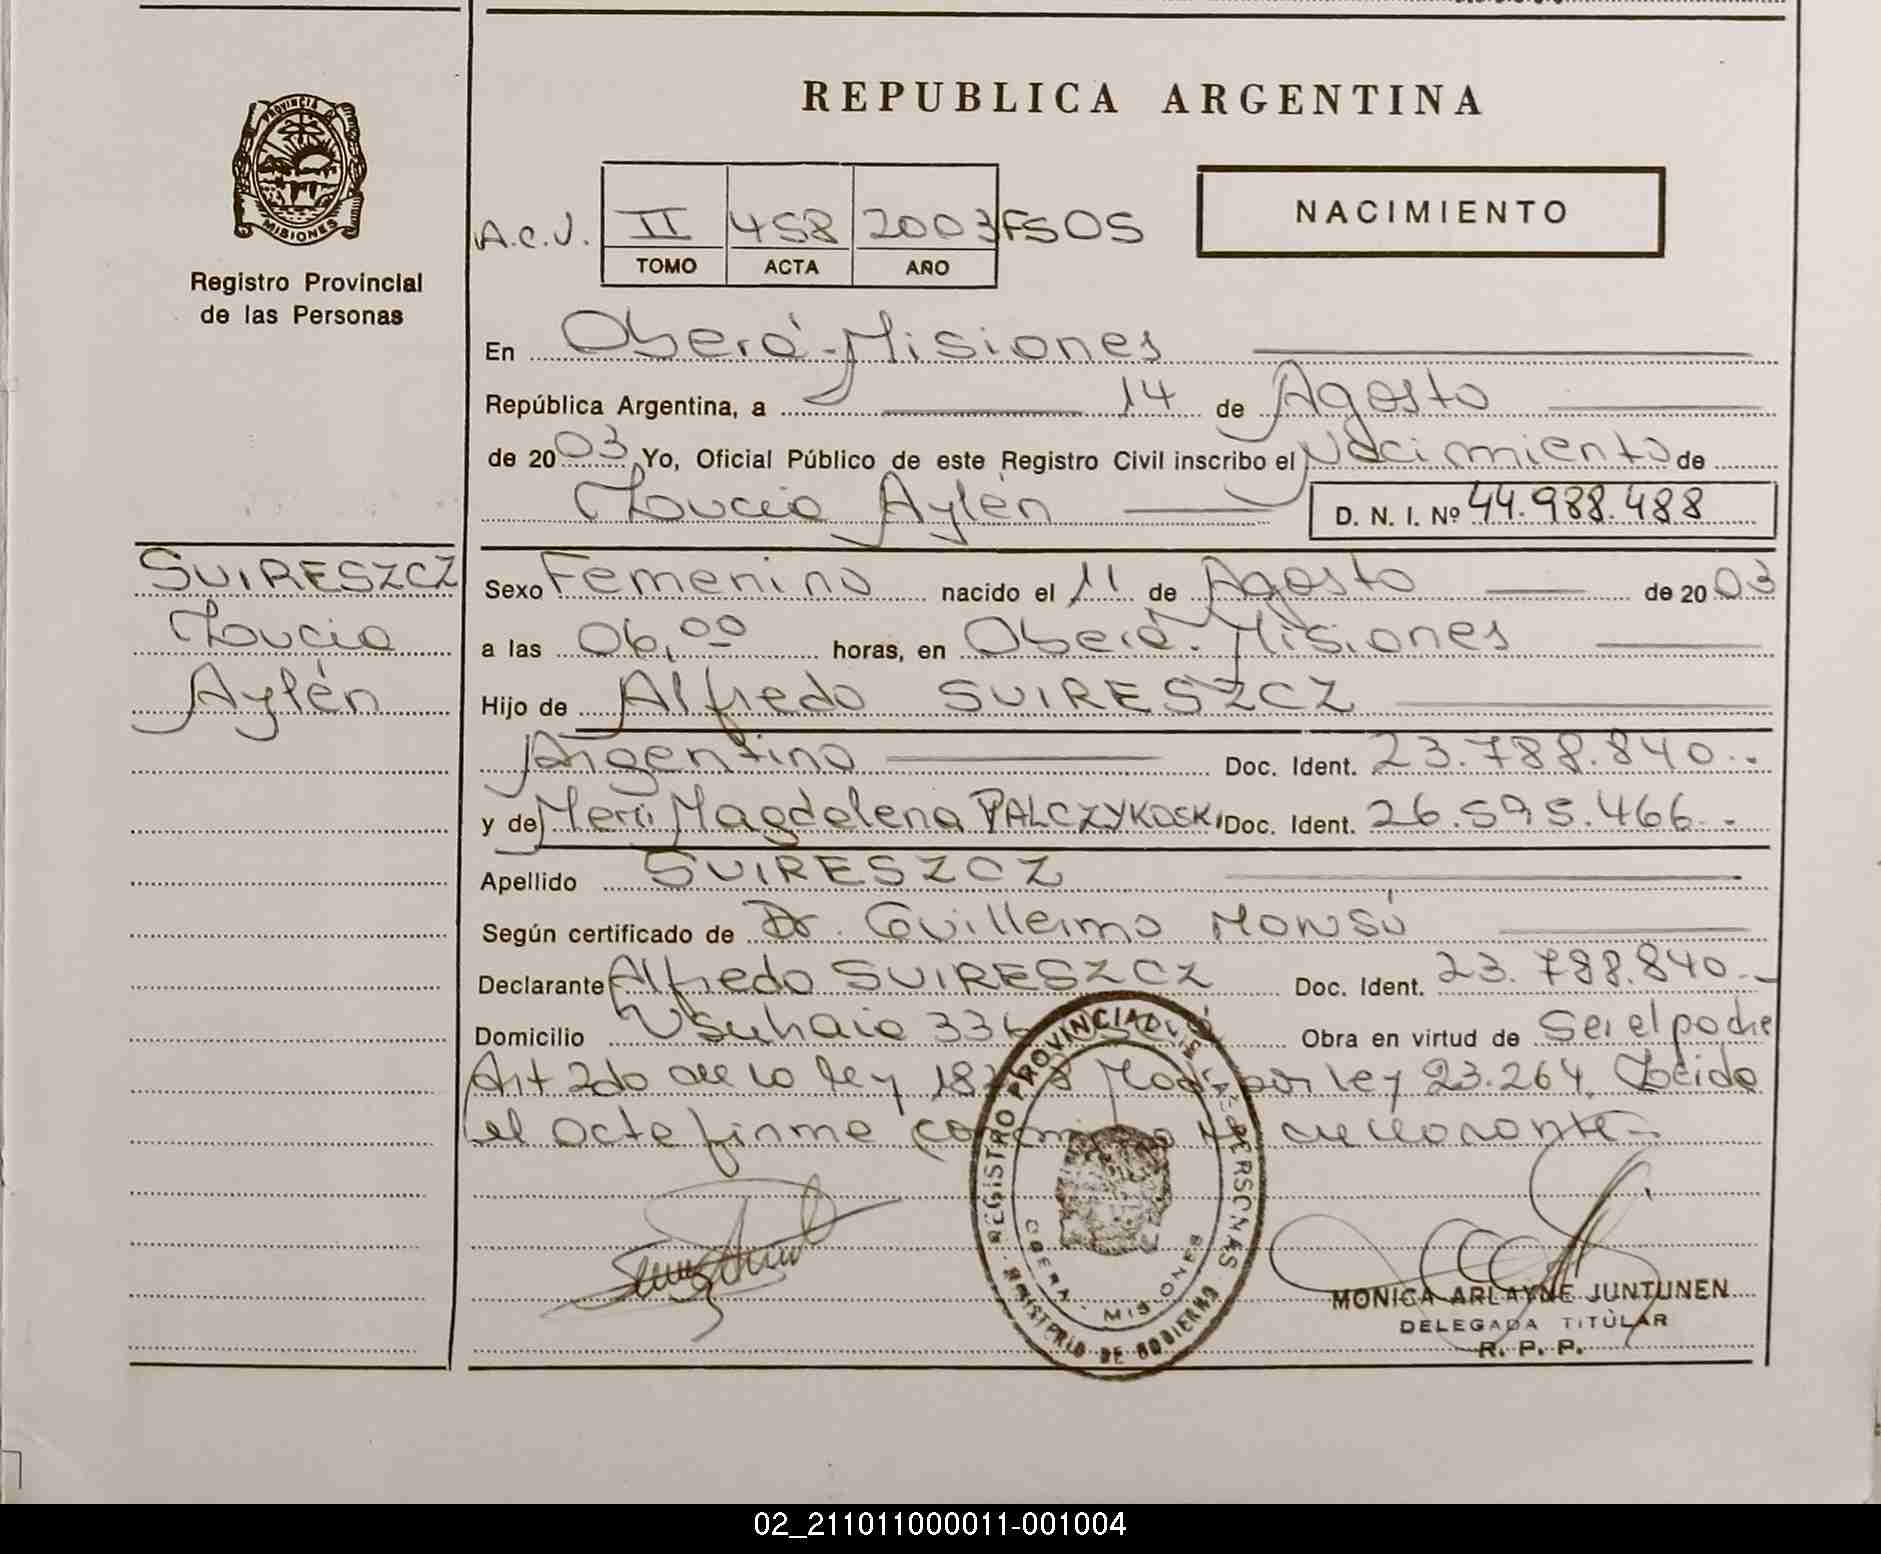 REPUBLICA ARGENTINA
PROVINCIA
MISIONES
Registro Provincial
de las Personas
NACIMIENTO
A.C.V. II 458 2003 FSOS
TOMO ACTA AÑO
En Oberá-Misiones
República Argentina, a 14 de Agosto
de 2003 Yo, Oficial Público de este Registro Civil inscribo el Nacimiento de
Loucia Aylén D. N. I. Nº 44.988.488
SUIRESZCZ
Loucia
Aylén
Sexo Femenino nacido el 11 de Agosto de 2003
a las 06,00 horas, en Oberá-Misiones
Hijo de Alfredo SUIRESZCZ
Argentino Doc. Ident. 23.788.840.-
y de Meri Magdalena PALCZYKOSKI Doc. Ident. 26.595.466.-
Apellido SUIRESZCZ
Según certificado de Dr. Guillermo Monsú
Declarante Alfredo SUIRESZCZ Doc. Ident. 23.788.840.-
Domicilio Usuhaia Obra en virtud de Ser el padre
Art 2do de la ley Mod por ley 23.264. Leida
el acta firma declarante-
REGISTRO PROVINCIAL DE LAS PERSONAS
OBERA - MISIONES
MINISTERIO DE GOBIERNO
MONICA ARLAYNE JUNTUNEN
DELEGADA TITULAR
R. P. P.
02_211011000011-001004